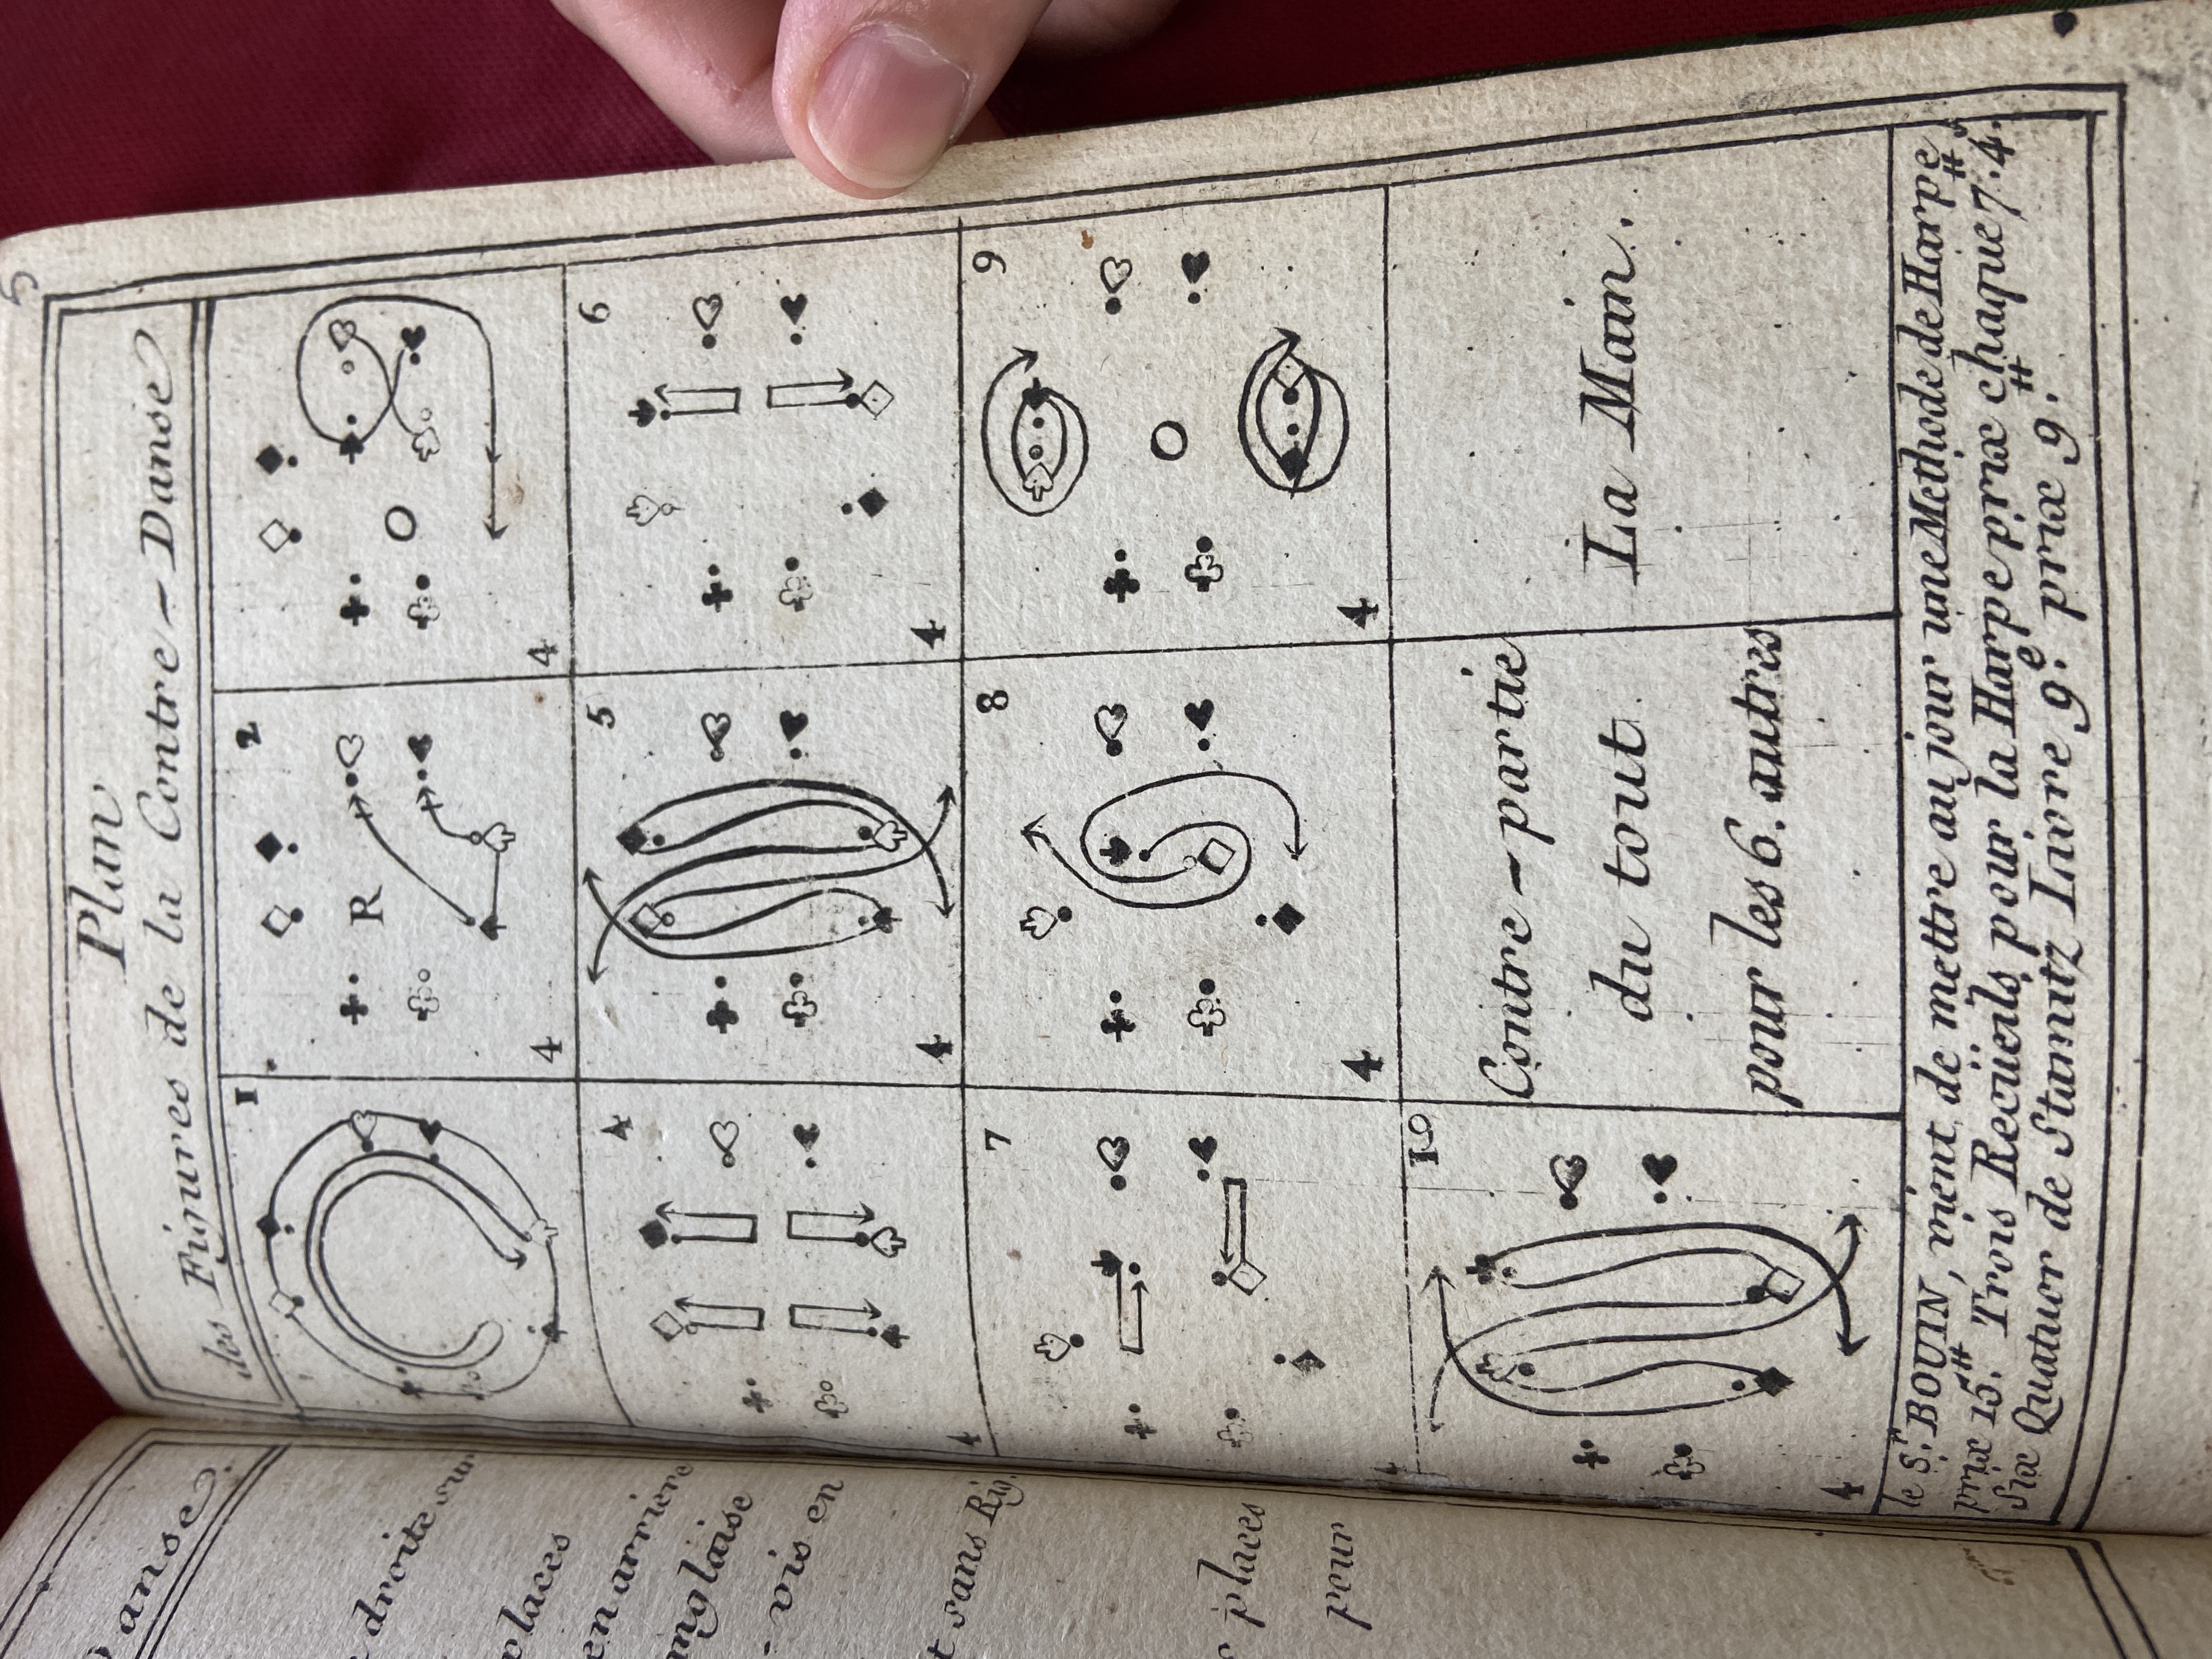 5
Plan
des Figures de la Contre-Danse
1
2
R
4
4
4
5
6
4
4
4
7
8
9
4
4
4
10
Contre-partie
du tout
pour les 6. autres
La Main.
4
le S.r BOUIN, vient de mettre au jour une Methode de Harpe
prix 15.# Trois Recüeils pour la Harpe prix chaque 7.# 4.s
Six Quatuor de Stamitz Livre 9.e prix 9.#
anse.
droite sur
places
en arriere
nglaise
- vis en
t sans Rig.
places
pour